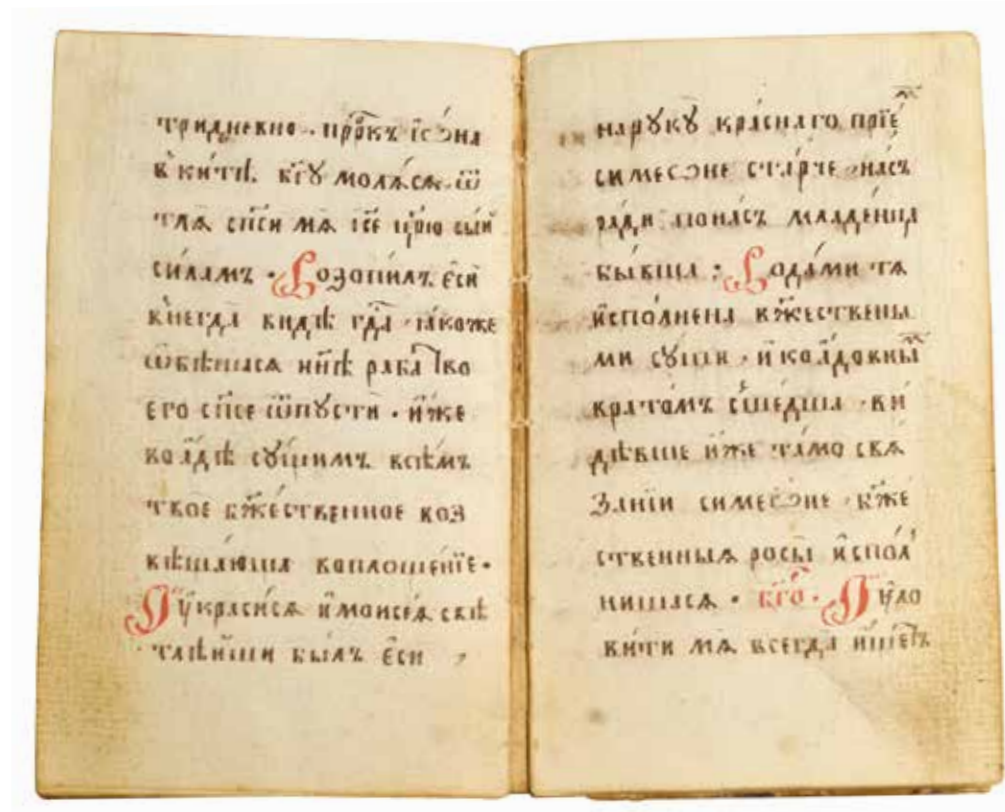 тридневно. прⷪ҇ркъ і҆ѡ́на
в̾ки́тѣ. бг҃ꙋ молѧ́сѧ. ѿ
тлѧ̀ сп҃си мѧ̀ і҆с҃е цр҃ю
си́ламъ. Возопи́лъ є҆сѝ
в̾негда̀ ви́дѣ гдⷭ҇а. ꙗ҆коже
ѡ҆бѣща́сѧ нн҃ѣ раба̀ тво
его сп҃се ѿпꙋсти. и҆́же
во а҆́дѣ сꙋ́щимъ всѣ́мъ
твое бж҃е́ственное воз
вѣща́юща воплоще́нїе.
Оу҆краси́сѧ и҆ моисе́ѧ свѣ
тлѣ́йши бы́лъ є҆сѝ
на рꙋкꙋ̀ кра́снаго прїе́мъ
симеѡ́не ста́рче. на́съ
ра́ди по на́съ младе́нца
бы́вша: Вода́ми тѧ
и҆спо́лнена бж҃ествены
ми сꙋ́ща. и҆ ко а҆́довны̑м
врато́мъ сше́дша. ви́
дѣвше и҆̀же та́мо свѧ́
занїи симеѡ́не. бж҃е́
ственныѧ росы̀ и҆спо́л
нишасѧ. бг҃о. Оу҆ло
ви́ти мѧ̀ всегда̀ и҆́щетъ